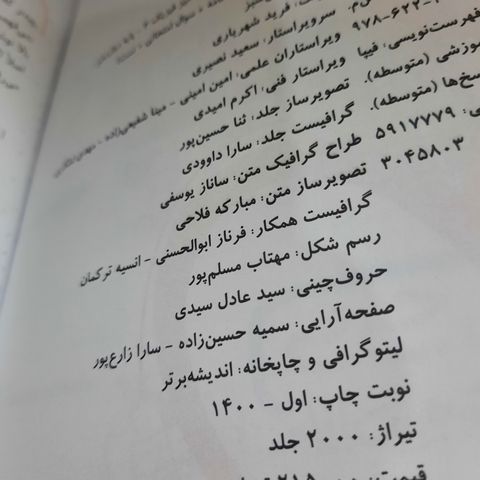 فرید شهریاری
سرویراستار: سعید نصیری
۹۷۸-۶۲۲ ویراستاران علمی: امین امینی - مینا شفیعی‌زاده - مهدی
فهرست‌نویسی: فیپا ویراستار فنی: اکرم امیدی
(متوسطه). تصویرساز جلد: ثنا حسین‌پور
(متوسطه). گرافیست جلد: سارا داوودی
۵۹۱۷۷۷۹ طراح گرافیک متن: ساناز یوسفی
۳۰۴۵۸۰۳ تصویرساز متن: مبارکه فلاحی
گرافیست همکار: فرناز ابوالحسنی - انسیه ترکمان
رسم شکل: مهتاب مسلم‌پور
حروف‌چینی: سید عادل سیدی
صفحه‌آرایی: سمیه حسین‌زاده - سارا زارع‌پور
لیتوگرافی و چاپخانه: اندیشه‌برتر
نوبت چاپ: اول - ۱۴۰۰
تیراژ: ۲۰۰۰ جلد